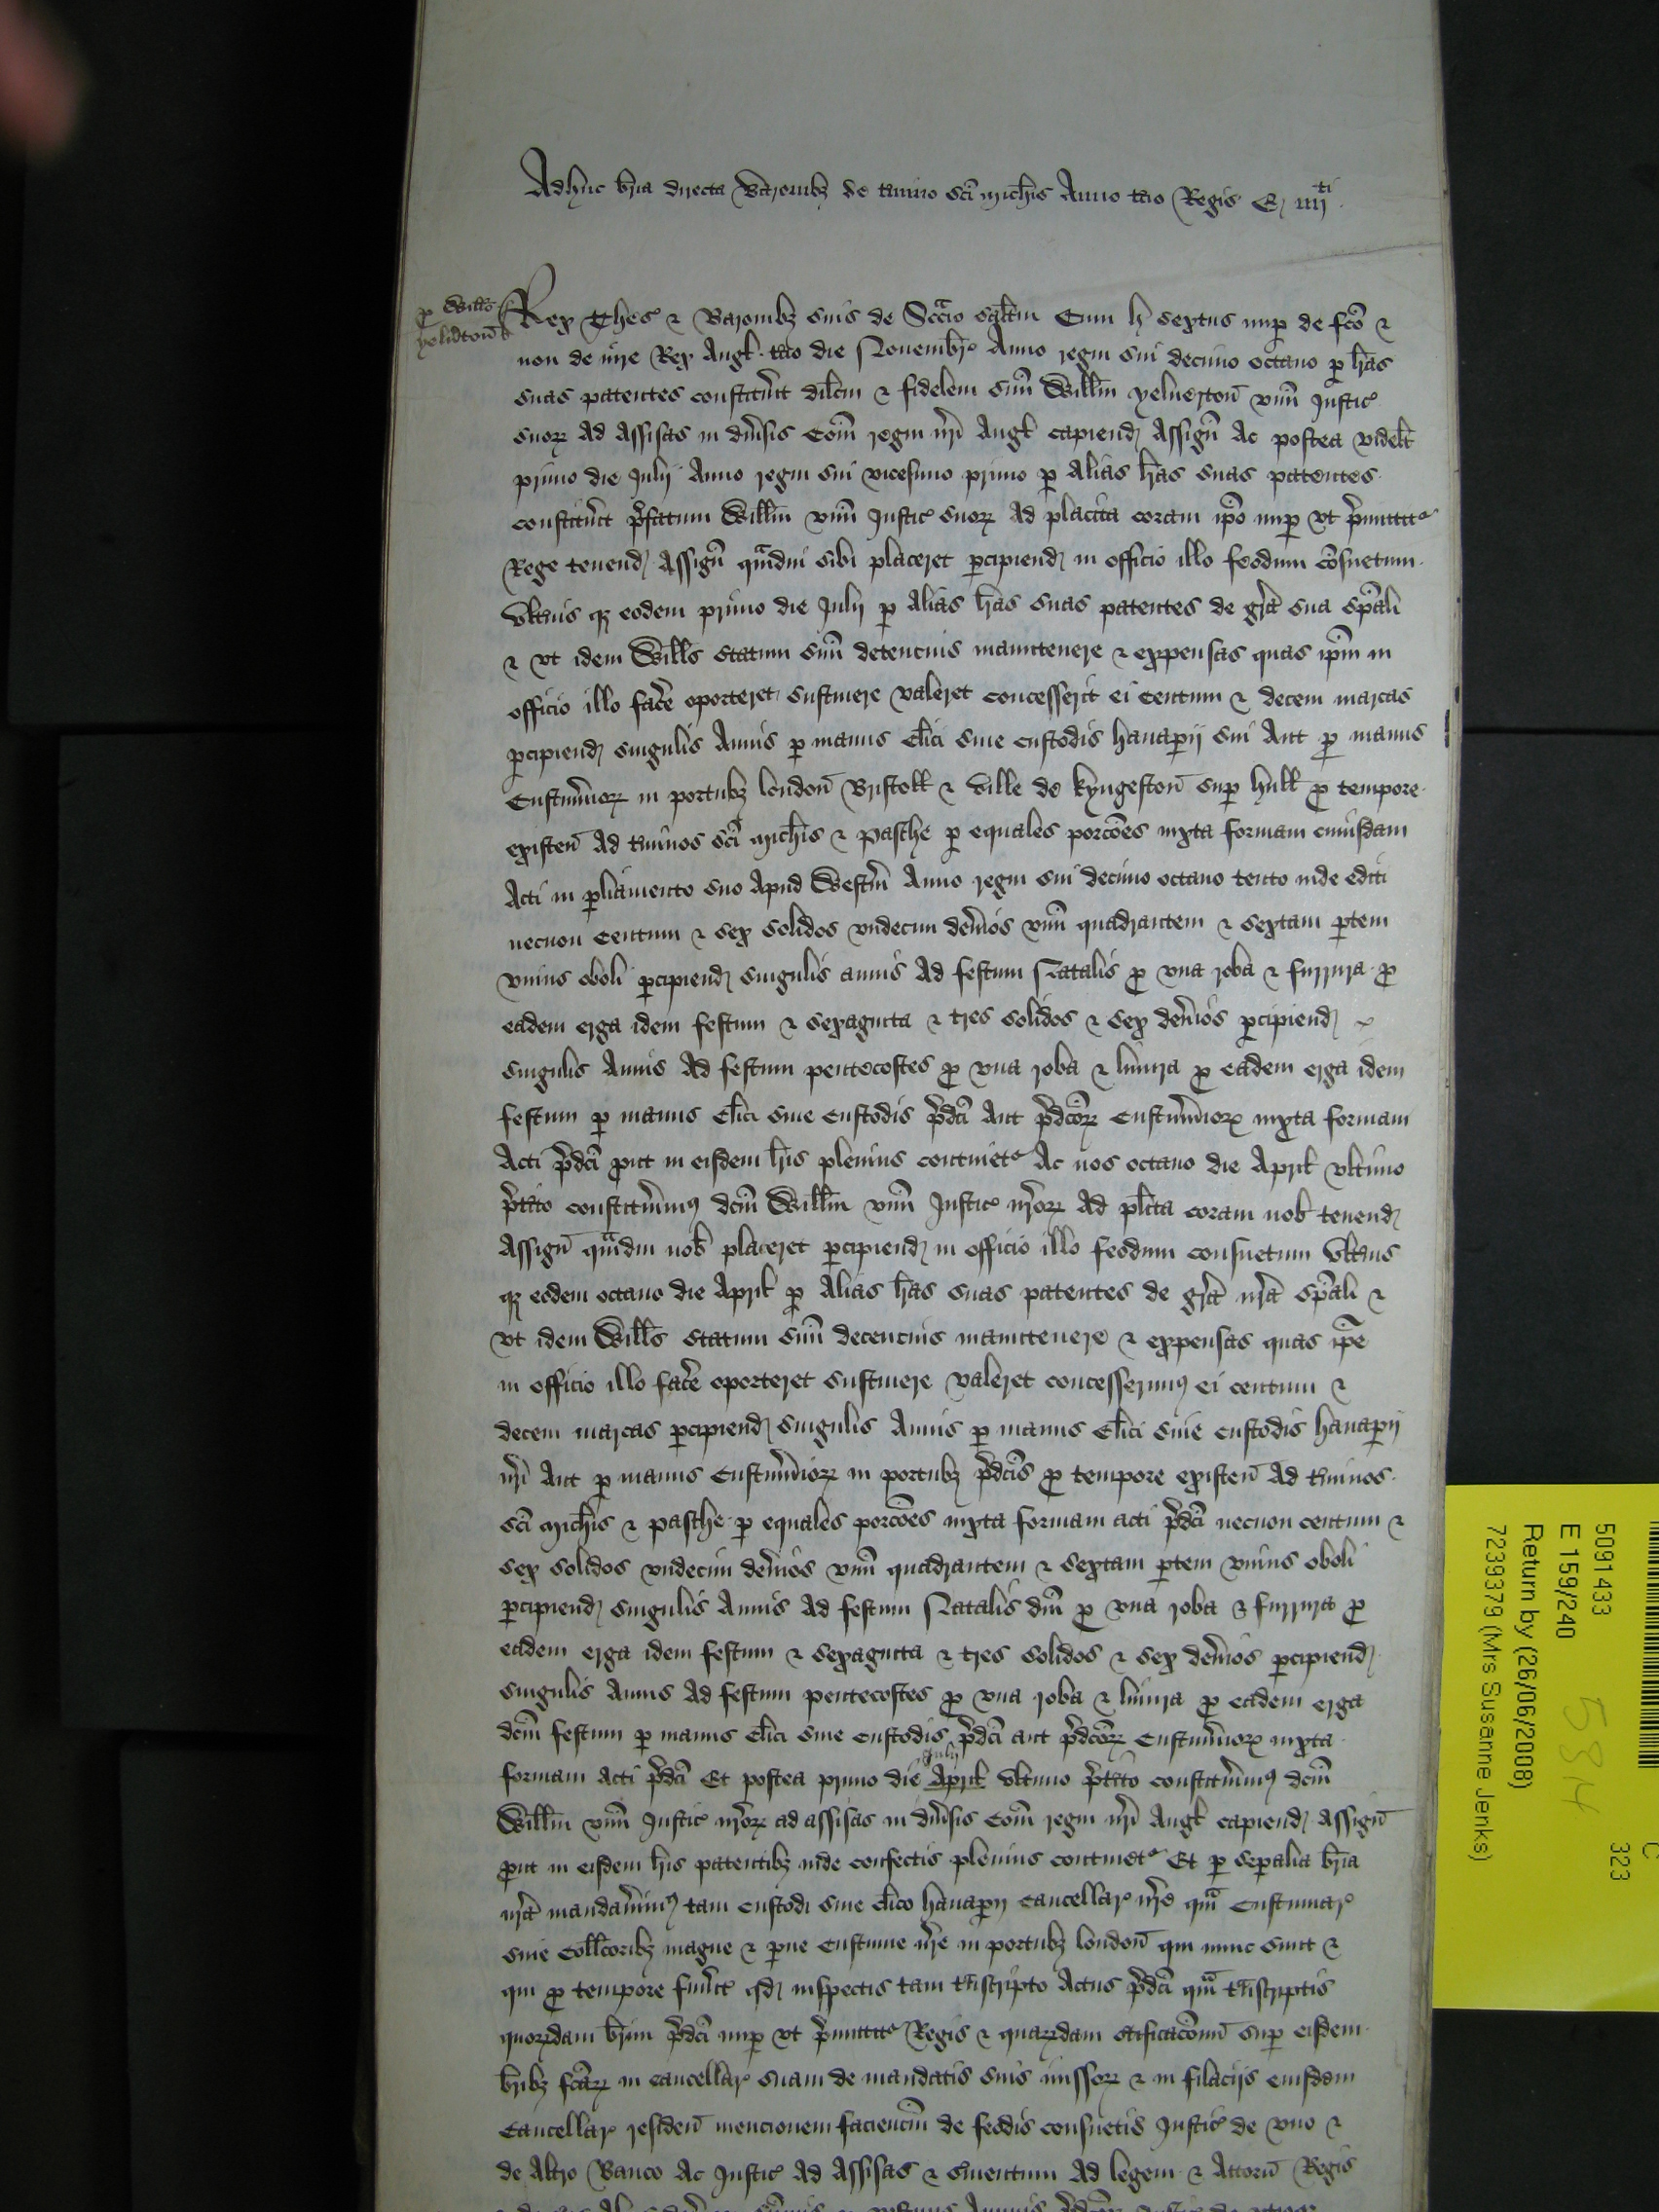 Adhuc br̃ia directa Baronibȝ de t̃mino sc̃i Mich̃is Anno t̃cio Regis E iiij^ti
p Will̃o
yelũton
Rex Thes' & Baronibȝ suis de Sc̃cio sal̃tm Cum h̃ sextus nup de fc̃o &
non de iure Rex Angl̃ t̃cio die Nouembr̃ Anno regni sui decimo octauo p l̃ras
suas patentes constitũit dil̃cm & fidelem suũ Will̃m yeluerton vnũ Justic'
suorꝝ Ad Assisas in diũsis Com̃ regni nr̃i Angl̃ capiend Assign̄ Ac postea videl̃t
primo die Julij Anno regni sui vicesimo primo p Alias l̃ras suas patentes
constitũit p̃fatum Will̃m vnũ Justic' suorꝝ Ad placita coram ip̃o nup vt p̃mittit'
Rege tenend Assign̄ q̃mdiu sibi placeret pcipiend in officio illo feodum cõsuetum
vlt̃ius qȝ eodem primo die Julij p Alias l̃ras suas patentes de gr̃a sua sp̃ali
& vt idem Will̃s statum suũ decencius manutenere & expensas quas ip̃m in
officio illo fac̃e oporteret sustinere valeret concesserit ei centum & decem marcas
pcipiend singulis Annis p manus cl̃ici siue custodis hanapij sui Aut p manus
Custum̃iorꝝ in portubȝ london̄ Bristoll̃ & ville de kyngeston̄ sup hull̃ p tempore
existen̄ Ad t̃minos sc̃i Mich̃is & Pasche p equales porcões iuxta formam cuiusdam
Acti in pliamento suo Apud Westm̃ Anno regni sui decimo octauo tento inde editi
necnon centum & sex solidos vndecim deñios vnũ quadrantem & sextam ptem
vnius oboli pcipiend singulis annis Ad festum Natalis p vna roba & furrura p
eadem erga idem festum & sexaginta & tres solidos & sex deñios pcipiend
singulis Annis Ad festum pentecostes p vna roba & linura p eadem erga idem
festum p manus cl̃ici siue custodis p̃dc̃i Aut p̃dc̃orꝝ Custum̃iorꝝ iuxta formam
Acti p̃dc̃i put in eisdem l̃ris plenius continet' Ac nos octauo die April̃ vltimo
p̃t̃ito constituim9 dc̃m Will̃m vnũ Justic' nr̃orꝝ Ad pl̃ita coram nob̃ tenend
Assign̄ q̃mdiu nob̃ placeret pcipiend in officio illo feodum consuetum vlt̃ius
qȝ eodem octauo die April̃ p Alias l̃ras suas patentes de gr̃a nr̃a sp̃ali &
vt idem Will̃s statum suũ decencius manutenere & expensas quas ip̃e
in officio illo fac̃e oporteret sustinere valeret concesserim9 ei centum &
decem marcas pcipiend singulis Annis p manus cl̃ici siue custodis hanapij
nr̃i Aut p manus Custum̃iorꝝ in portubȝ p̃dc̃is p tempore existen̄ Ad t̃minos
sc̃i Mich̃is & pasche p equales porcões iuxta formam acti p̃dc̃i necnon centum &
sex solidos vndecim deñios vnũ quadrantem & sextam ptem vnius oboli
pcipiend singulis Annis Ad festum Natalis dñi p vna roba & furrura p
eadem erga idem festum & sexaginta & tres solidos & sex deñios pcipiend
singulis Annis Ad festum pentecostes p vna roba & linura p eadem erga
dc̃m festum p manus cl̃ici siue custodis p̃dc̃i aut p̃dc̃orꝝ Custum̃iorꝝ iuxta
July
formam Acti p̃dc̃i Et postea primo die April̃ vltimo p̃t̃ito constituim9 dc̃m
Will̃m vnũ Justic' nr̃orꝝ ad assisas in diũsis Com̃ regni nr̃i Angl̃ capiend Assign̄
put in eisdem l̃ris patentibȝ inde confectis plenius continet' Et p sepalia br̃ia
nr̃a mandauim9 tam custodi siue cl̃ico hanapij Cancellar' nr̃e q̃m Custumar'
siue coll̃coribȝ magne & pue Custume nr̃e in portubȝ london̄ qui nunc sunt &
qui p tempore fuer̃t qd inspectis tam t̃nscripto Actus p̃dc̃i q̃m t̃nscriptis
quorꝝdam br̃ium p̃dc̃i nup vt p̃mittit' Regis & quarꝝdam c̃tificac̃onũ sup eisdem
br̃ibȝ fc̃arꝝ in Cancellar' suam de mandatis suis missorꝝ & in filacijs eiusdem
Cancellar' residen̄ mencionem facienciũ de feodis consuetis Justic' de vno &
de Altro Banco Ac Justic' Ad Assisas & s̃uientum Ad legem & Attorn̄ Regis
5091433
E 159/240
Return by (26/06/2008)
7239379 (Mrs Susanne Jenks)
C
323
5814